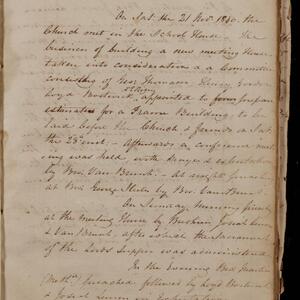 On Sat. the 21 Nov. 1840. the
Church met in the School House. The
business of building a new meeting House
taken into consideration & a Committee
consisting of Geo. Henry
Loyd Bostwick appointed to prepare
estimates for a Frame Building to be
laid before the Church & friends on Sat.
the 28th inst. Afterwards a conference meet
ing was held, with prayer & exhortation
by Bro. Van Brunt. At night preach
at Bro. George by Bro. Van Brunt.
On Sunday Morning preach
at the meeting House by Brethren
& Van Brunt, after which the Sacrament
of the Lords Supper was administered
In the Evening Bro.
preached followed by Loyd Bostwick
&